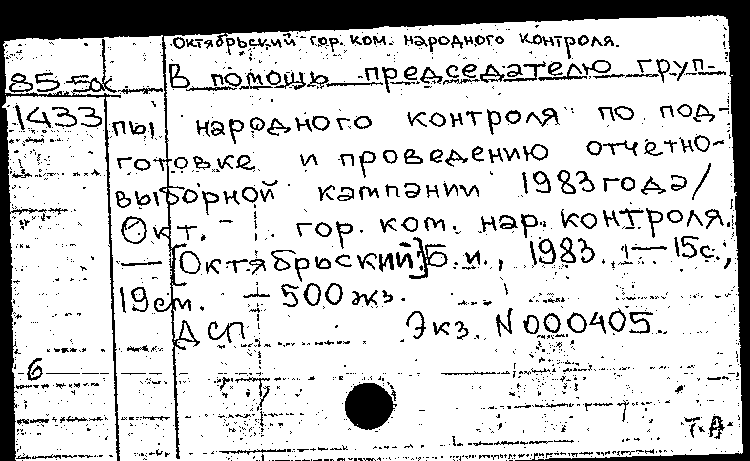 Октябрьский гор. ком. народного контроля.
85-5дк
В помощь председателю груп-
1433
пы народного контроля по под-
готовке и проведению отчетно-
выборной кампании 1983 года/
Окт. гор. ком. нар. контроля.
— [Октябрьский:] Б.и., 1983. — 15с.;
19см. — 500 экз.
ДСП Экз. N000405.
6
Т. А.